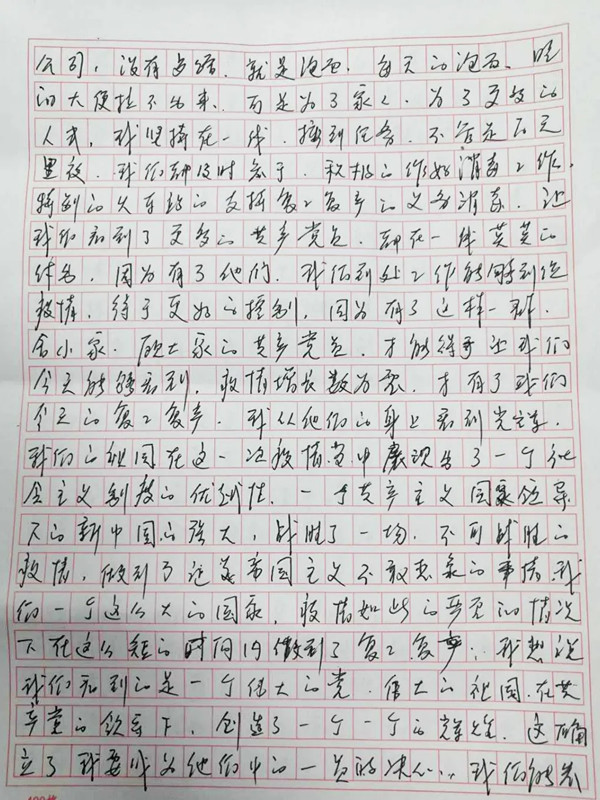 公司，没有多话，就是泡面，每天的泡面，吃
的大便拉不出来，而是为了家人，为了更多的
人民，我坚持在一线，接到任务，不管是百元
里程，我们都及时
积极的作好消毒工作，
特别的火车站的支持复工复产的义务消毒，让
我们看到了更多的共产党员，都在一线英英的
体名，因为有了他们，我们到处工作能够到位
疫情，得于更好的控制，因为有了这样一群，
舍小家，顾大家的共产党员，才能得予让我们
今天能够看到，疫情增长数为零，才有了我们
今天的复工复产，我从他们的身上看到光辉，
我们的祖国在这一次疫情当中展现出了一个社
会主义制度的优越性，一个共产主义国家领导
下的新中国的强大，战胜了一场，不可战胜的
疫情，做到了让美帝国主义不敢想象的事情，我
们一个这么大的国家，疫情如此的严重的情况
下在这么短的时间内做到了复工复产，我想说
我们看到的是一个伟大的党，伟大的祖国，在共
产党的领导下，创造了一个一个的辉煌，这在确
立了我要成为他们中的一员的决心，我们能